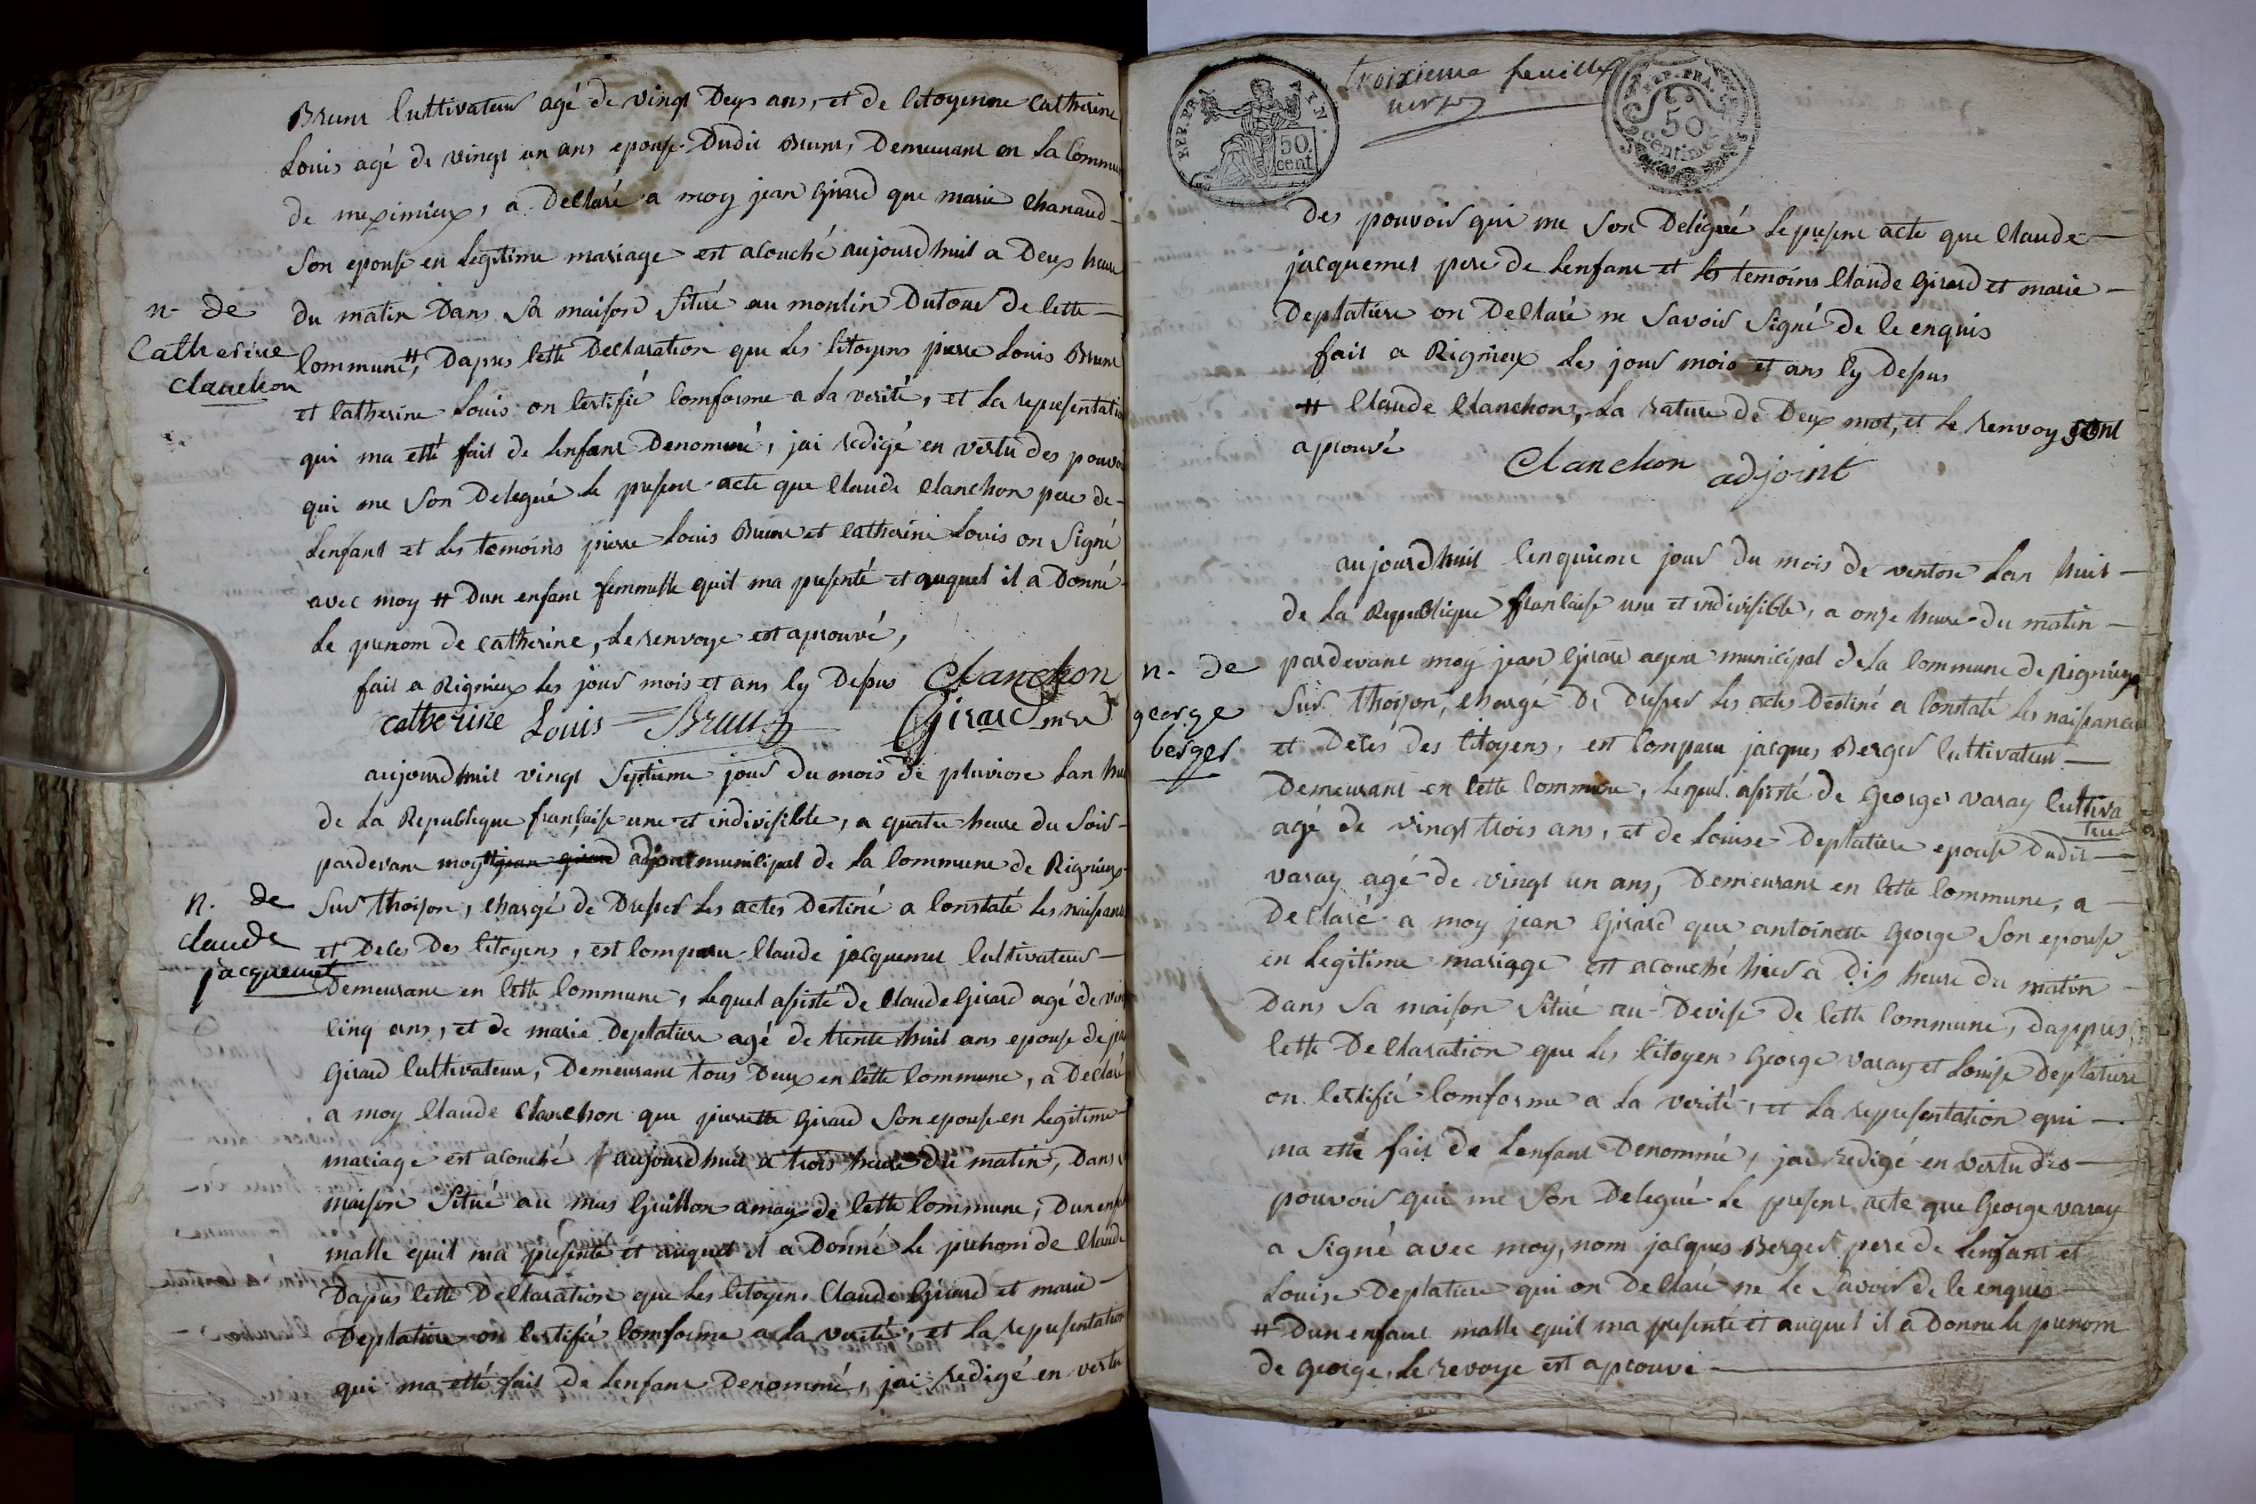 Brunt Cultivateur agé de vingt Deux ans, et de Citoyenne Catherine
Louis agé de vingt un ans epouse Dudit Brunt, Demeurant en La Commu
de meximieux, a Declaré a moy jean Girard que marie Chanaud
Son epouse en Legitime mariage est acouché aujourdhuit a Deux heure
n. de
Catherine
Clanchon
Du matin Dans Sa maison Situé au moulin Dutour de Cette
Commune, # Dapres Cette Declaration que Les Citoyens pierre Louis Brunt
et Catherine Louis on Certifié Comforme a La verité, et La representatio
qui ma etté fait de Lenfant Denommé, jai redigé en vertu des pouvoi
qui me Son Delegué Le present acte que Claude Clanchon pere de
Lenfant et Les temoins pierre Louis Brunt et Catherine Louis on Signé
avec moy # Dun enfant femmelle quil ma presenté et auquel il a Donné
Le prenom de Catherine, Le renvoye est aprouvé,
fait a Rignieux Les jour mois et ans Cy Depus Clanchon
catherine Louis Brun Girard
aujourdhuit vingt Septieme jour du mois de pluviose Lan hui
de La Republeque française une et indivisible, a quatre heure du Soir
pardevant moy # jean girard adjoint municipal de La Commune de Rignieux
n. de
claude
jacquemet
Sur Thoison, Chargé de Dresser Les actes Destiné a Constaté Les naissance
et Deces Des Citoyens, est Comparu Claude jacquemet Cultivateur
Demeurant en Cette Commune, Lequel assisté de Claude Girard agé de vin
Cinq ans, et de marie Deplature agé de trente huit ans epouse de je
Girard Cultivateur, Demeurant tous Deux en Cette Commune, a Declaré
a moy Claude Clanchon que pierrette Girard Son epouse en Legitime
mariage est acouché aujourdhuit a trois heure du matin, Dans
maison Situé au mas Guillon amaz de Cette Commune, Dun enfa
malle quil ma presenté et auquel il a Donné Le prenom de Claude
Dapres Cette Declaration que Les Citoyens Claude Girard et marie
Deplature on Certifié Comforme a La verité, et La representation
qui ma etté fait De Lenfant Denommé, jai redigé en vertu
REP. FRA.
TYN.
50
cent
troixieme feuille
verso
REP. FRA.
50
Centimes
Des pouvoir qui me Son Delegué Le present acte que Claude
jacquemet pere de Lenfant et Les temoins Claude Girard et marie
Deplature on Declaré ne Savoir Signé de Ce enquis
fait a Rignieux Les jour mois et ans Cy Depus
# Claude Clanchon, La rature de Deux mot, et Le renvoy sont
aprouvé
Clanchon adjoint
aujourdhuit Cenquieme jour du mois de ventose Lan huit
de La Republique francaise une et indivisible, a onze heure du matin
n. de
george
berger
pardevant moy jean Girard agent municipal de La Commune de Rignieux
Sur Thoison, Chargé De Dresser Les actes Destiné a Constaté Les naissance
et Decés des Citoyens, est Comparu jacques Berger Cultivateur
Demeurant en Cette Commune, Lequel assisté de George varay Cultiva
teur
agé de vingt trois ans, et de Louise Deplature epouse Dudit
varay agé de vingt un ans, Demeurant en Cette Commune, a
Declaré a moy jean Girard que antoinette George Son epouse
en Legitime mariage est acouché hier a dix heure du matin
Dans Sa maison Situé au Devise de Cette Commune, dappres
Cette Declaration que Les Citoyen George varay et Louise Deplature
on Certifié Comforme a La verité, et La representation qui
ma etté fait de Lenfant Denommé, jai redigé en vertu des
pouvoir qui me Son Delegué Le present acte que George varay
a Signé avec moy, nom jacques Berger pere de Lenfant et
Louise Deplature qui on Declaré ne Le Savoir de Ce enquis
# Dun enfant malle quil ma presenté et auquel il a Donne Le prenom
de George, Le revoye est aprouvé